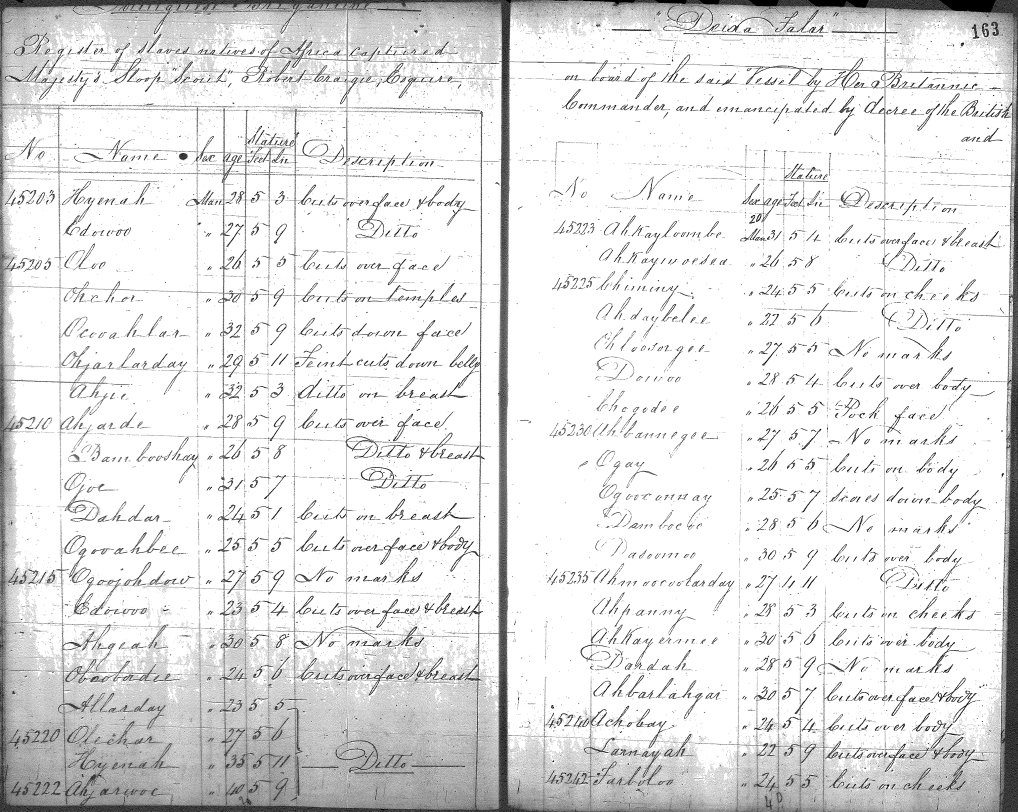 Register of slaves natives of Africa captured
Majesty's Sloop "Scout", Robert Craigie, Esquire,
No Name Sex age Stature Feet In Description
45203 Hyenah Man 28 5 3 Cuts over face & body
Edowoo " 27 5 9 Ditto
45205 Oloo " 26 5 5 Cuts over face
Ohchor " 30 5 9 Cuts on temples
Ocooahlar " 32 5 9 Cuts down face
Ohjarlarday " 29 5 11 Feint cuts down belly
Ahjie " 32 5 3 ditto on breast
45210 Ahjarde " 28 5 9 Cuts over face
Bambooshay " 26 5 8 Ditto & breast
Ojoe " 31 5 7 Ditto
Dahdar " 24 5 1 Cuts on breast
Ogooahbee " 25 5 5 Cuts over face & body
45215 Ogoojohdow " 27 5 9 No marks
Edowoo " 23 5 4 Cuts over face & breast
Ahgeah " 30 5 8 No marks
Obaobadie " 24 5 6 Cuts over face & breast
Allarday " 23 5 5
45220 Olechar " 27 5 6
Hyenah " 35 5 11 Ditto
45222 Ahjarwoe " 40 5 9
"Deida Falar"
163
on board of the said Vessel by Her Britannic
Commander, and emancipated by decree of the British
and
No Name Sex age Stature Feet In Description
45223 Ahkayloombe Man 31 5 4 Cuts over face & breast
Ahkaywoesea " 26 5 8 Ditto
45225 Chiminy " 24 5 5 Cuts on cheeks
Ahdaybelee " 22 5 6 Ditto
Ohloosorgoe " 27 5 5 No marks
Dowoo " 28 5 4 Cuts over body
Chegodee " 26 5 5 Pock face
45230 Ahbannegee " 27 5 7 No marks
Ogay " 26 5 5 Cuts on body
Ogooconnay " 25 5 7 Scores down body
Dambecie " 28 5 6 No marks
Dasoomoo " 30 5 9 Cuts over body
45235 Ahmoocoolarday " 27 4 11 Ditto
Ahpanny " 28 5 3 Cuts on cheeks
Ahkayermee " 30 5 6 Cuts over body
Dardah " 28 5 9 No marks
Ahbarlahgar " 30 5 7 Cuts over face & body
45240 Achobay " 24 5 4 Cuts over body
Larnayah " 22 5 9 Cuts over face & body
45242 Farboloo " 24 5 5 Cuts on cheeks